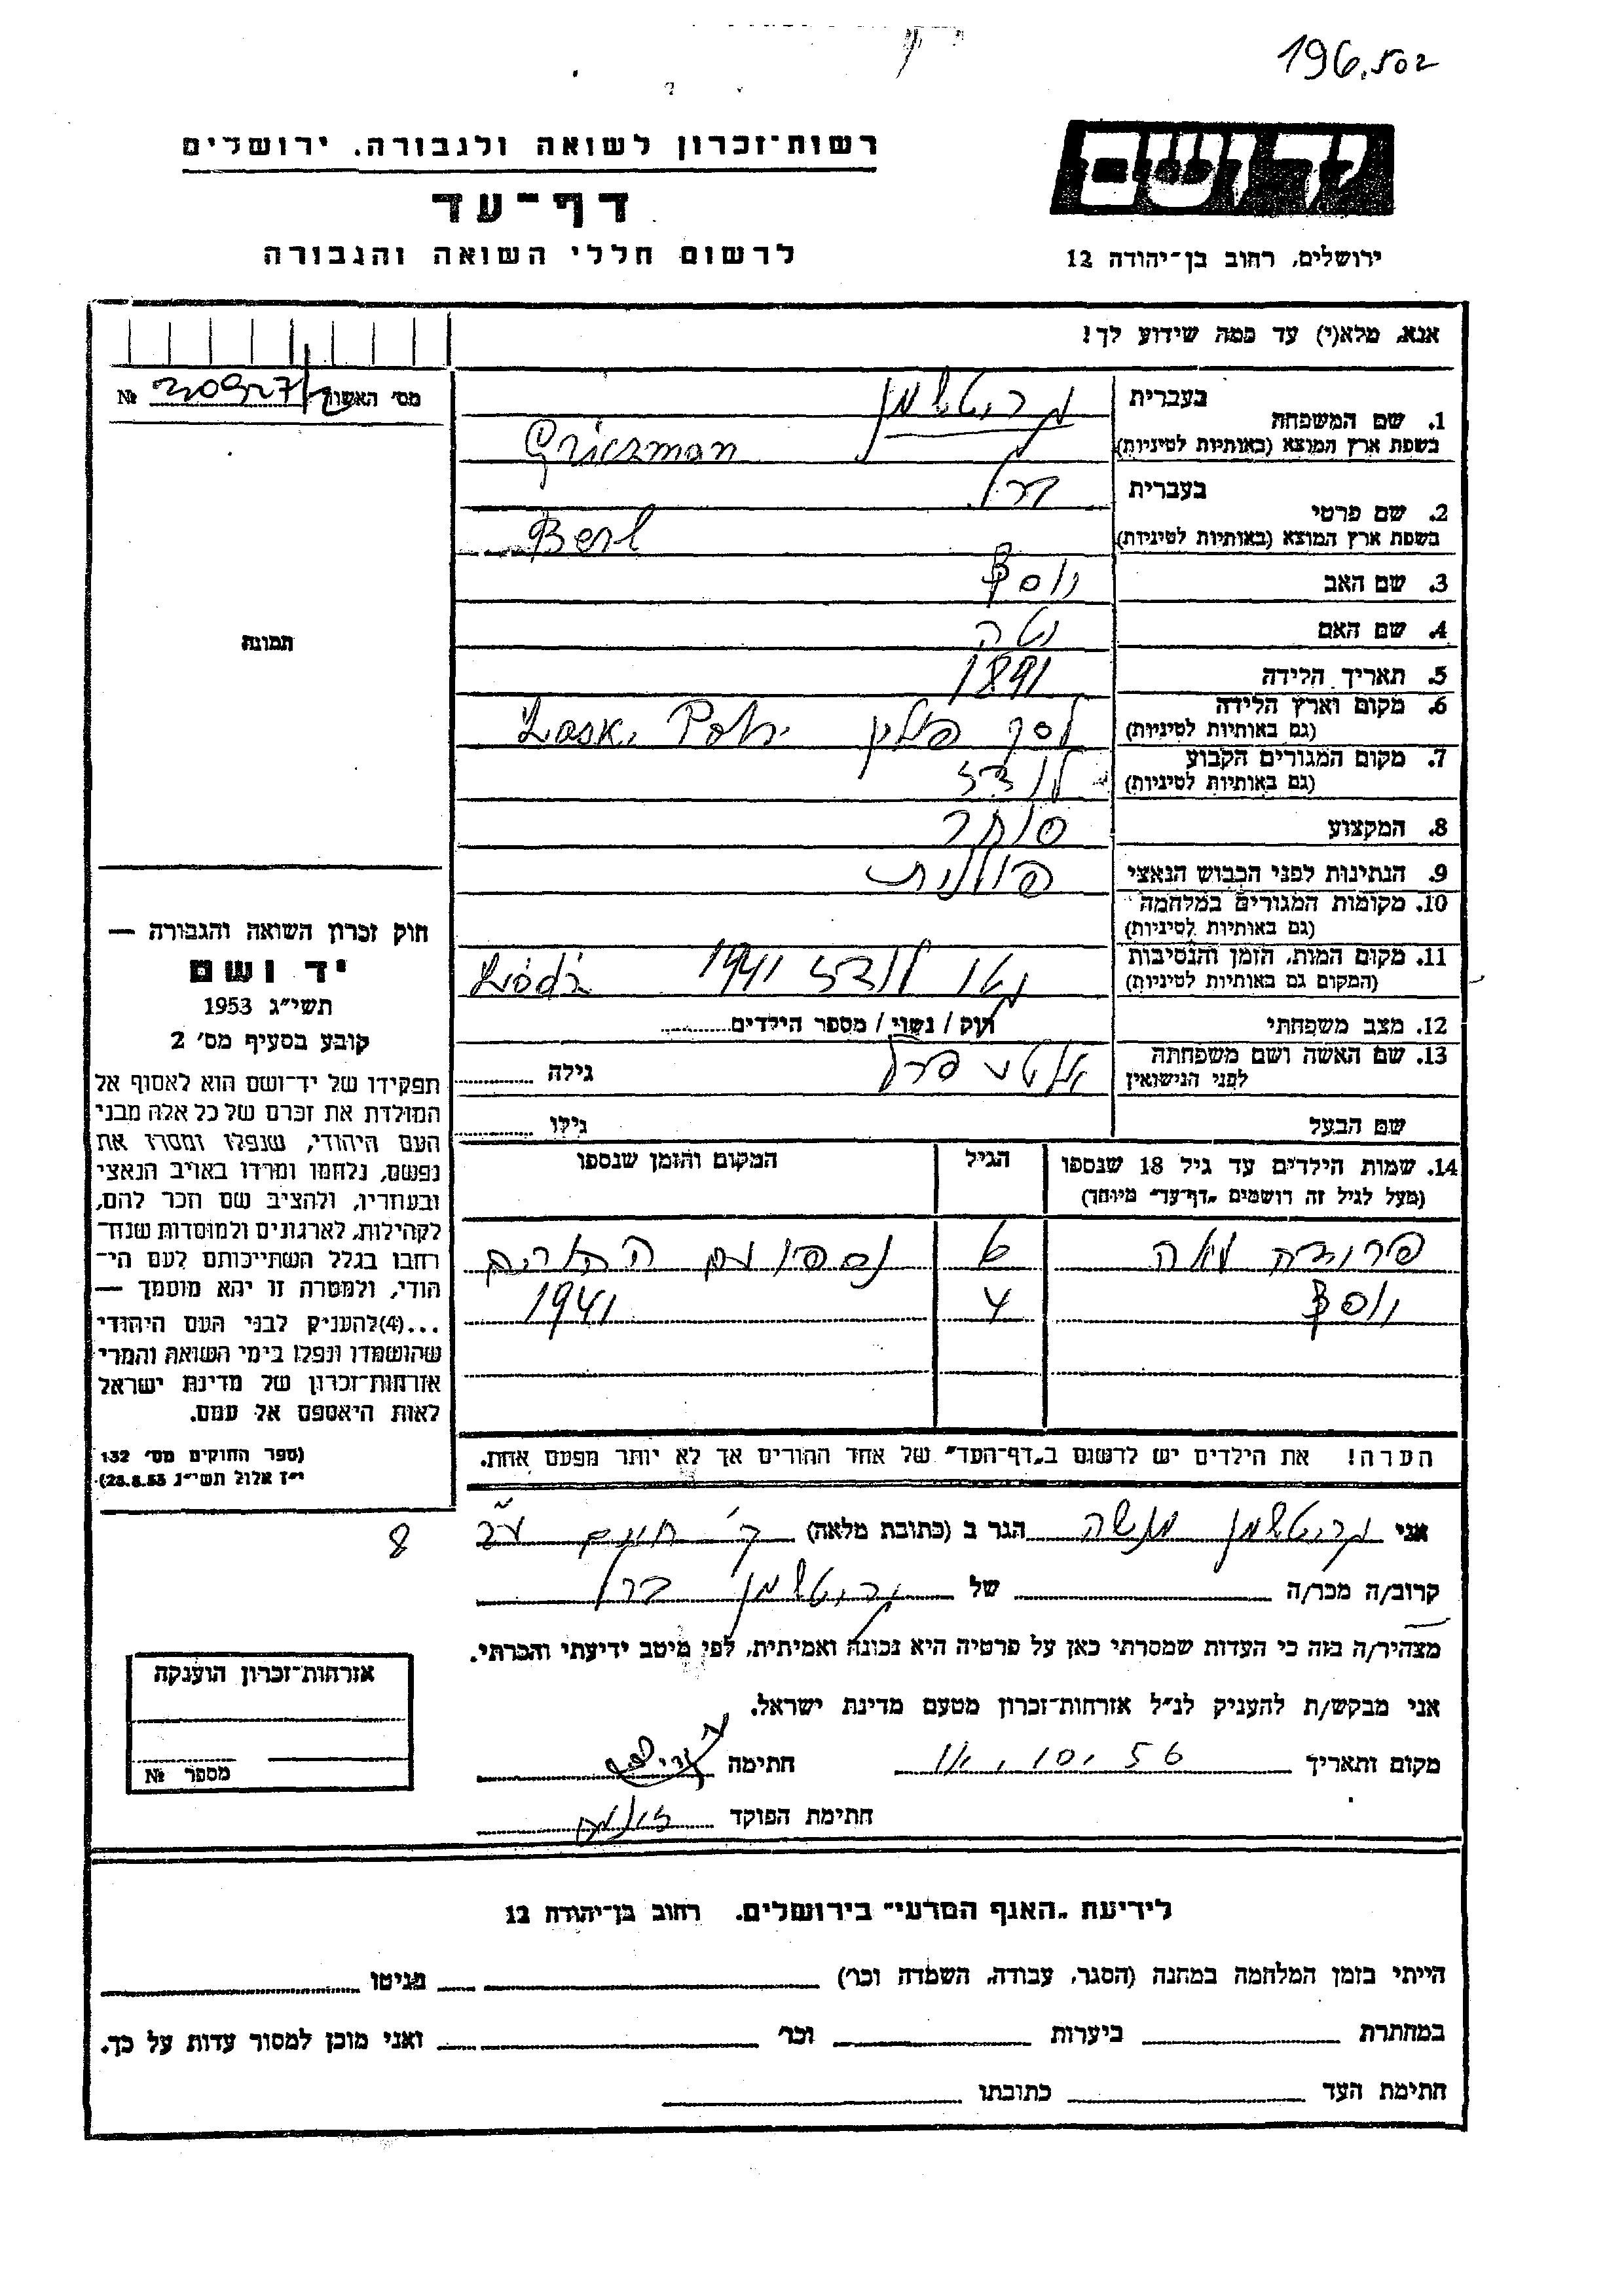 196.502
רשות־זכרון לשואה ולגבורה, ירושלים
דף־עד
לרשום חללי השואה והגבורה
יד ושם
ירושלים, רחוב בן־יהודה 12
אנא, מלא(י) עד כמה שידוע לך!
מס׳ האשור №
1. שם המשפחה
בעברית גריטצמן
בשפת ארץ המוצא (באותיות לטיניות) Griczman
2. שם פרטי
בעברית ברל
בשפת ארץ המוצא (באותיות לטיניות) Berl
3. שם האב יוסף
4. שם האם
5. תאריך הלידה 1891
6. מקום וארץ הלידה לסק פולין Łask,
(גם באותיות לטיניות)
7. מקום המגורים הקבוע לודז
(גם באותיות לטיניות)
8. המקצוע סוחר
9. הנתינות לפני הכבוש הנאצי פולנית
10. מקומות המגורים במלחמה
(גם באותיות לטיניות)
11. מקום המות, הזמן והנסיבות גטו לודז 1941 Łódź
(המקום גם באותיות לטיניות)
12. מצב משפחתי רוק / נשוי / מספר הילדים
13. שם האשה ושם משפחתה
לפני הנישואין
גילה
שם הבעל גילו
14. שמות הילדים עד גיל 18 שנספו
(מעל לגיל זה רושמים „דף־עד״ מיוחד)
הגיל
המקום והזמן שנספו
פרומה לאה 6 נספו עם ההורים
יוסף 4 1941
הערה! את הילדים יש לרשום ב„דף־העד״ של אחד ההורים אך לא יותר מפעם אחת.
תמונה
חוק זכרון השואה והגבורה —
יד ושם
תשי״ג 1953
קובע בסעיף מס׳ 2
תפקידו של יד־ושם הוא לאסוף אל
המולדת את זכרם של כל אלה מבני
העם היהודי, שנפלו ומסרו את
נפשם, נלחמו ומרדו באויב הנאצי
ובעוזריו, ולהציב שם וזכר להם,
לקהילות, לארגונים ולמוסדות שנח־
רבו בגלל השתייכותם לעם הי־
הודי, ולמטרה זו יהא מוסמך —
...(4)להעניק לבני העם היהודי
שהושמדו ונפלו בימי השואה והמרי
אזרחות־זכרון של מדינת ישראל
לאות היאספם אל עמם.
(ספר החוקים מס׳ 132
י״ז אלול תשי״ג 28.8.53)
8
אני גריטצמן מנשה הגר ב (כתובת מלאה) ק׳ חיים
קרוב/ה מכר/ה של גריטצמן ברל
מצהיר/ה בזה כי העדות שמסרתי כאן על פרטיה היא נכונה ואמיתית, לפי מיטב ידיעתי והכרתי.
אני מבקש/ת להעניק לנ״ל אזרחות־זכרון מטעם מדינת ישראל.
מקום ותאריך חתימה
חתימת הפוקד
אזרחות־זכרון הוענקה
מספר №
לידיעת „האגף המדעי״ בירושלים, רחוב בן־יהודה 12
הייתי בזמן המלחמה במחנה (הסגר, עבודה, השמדה וכר׳) בגיטו
במחתרת ביערות וכר׳ ואני מוכן למסור עדות על כך.
חתימת העד כתובתו